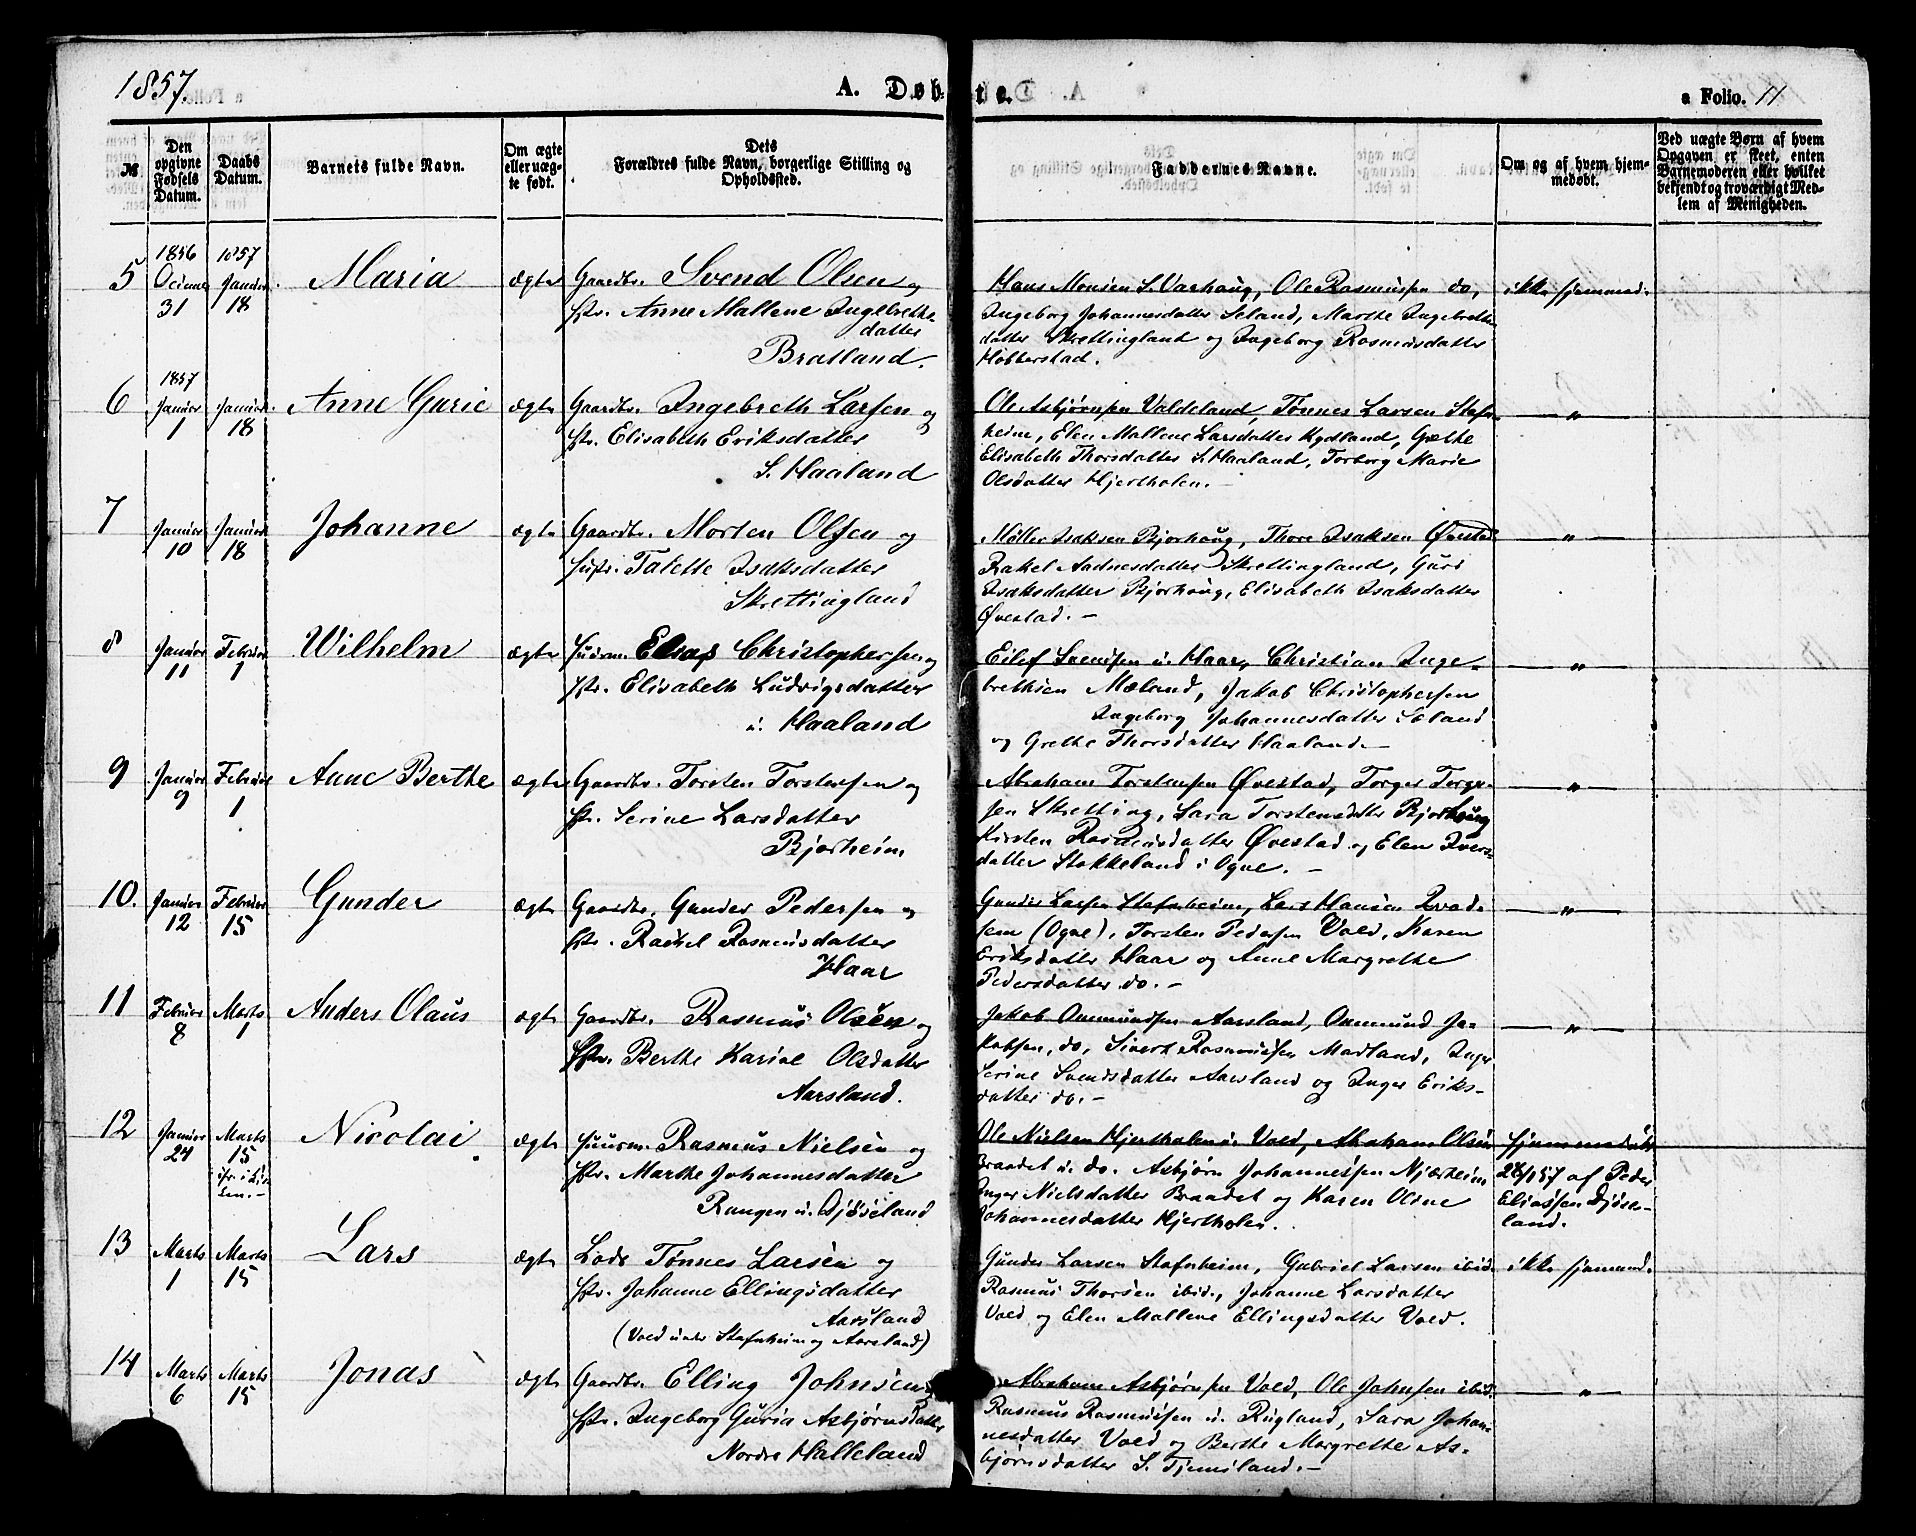 1857.
A. Døbte.
a Folio. 11
№
Den opgivne Fødsels Datum.
Daabs Datum.
Barnets fulde Navn.
Om ægte eller uægte født.
Dets Forældres fulde Navn, borgerlige Stilling og Opholdssted.
Faddernes Navne.
Om og af hvem hjemmedøbt.
Ved uægte Børn af hvem Opgaven er skeet, enten Barnemoderen eller hvilket bekjendt og troværdigt Medlem af Menigheden.
5 1856 31 1857 Januar 18 Maria ægte Gaardbr. Svend Olsen og
Hstr. Anne Mallene Ingebreths-
datter
Bratland.
Hans Monsen S. Varhaug, Ole Rasmussen do,
Ingeborg Johannesdatter Seland, Marthe Ingebreths-
datter Skrettingland og Ingeborg Rasmusdatter
Hobberstad.
ikke hjemmed.
6 1857 Januar 1 Januar 18 Anne Gurie ægte Gaardbr. Ingebreth Larsen og
Hstr. Elisabeth Eriksdatter
S. Haaland
Ole Asbjørnsen Valdeland, Tønnes Larsen Stafn-
heim, Elen Mallene Larsdatter Kydland, Grethe
Elisabeth Thorsdatter S. Haaland, Torborg Marie
Olsdatter Hjertholen. -
— " —
7 Januar 10 Januar 18 Johanne ægte Gaardbr. Morten Olsen og
Hustr. Talette Isaksdatter
Skrettingland
Møller Isaksen Bjorhaug, Thore Isaksen Øvestad
Rakel Aadnesdatter Skrettingland, Guri
Isaksdatter Bjorhaug, Elisabeth Isaksdatter
Øvestad. -
— " —
8 Januar 11 Februar 1 Wilhelm ægte Huusm. Elias Christophersen og
Hstr. Elisabeth Ludvigsdatter
u. Haaland
Eilef Svendsen u. Haar, Christian Inge-
brethsen Mæland, Jakob Christophersen
Ingeborg Johannesdatter Seland
og Grethe Thorsdatter Haaland. -
— " —
9 Januar 9 Februar 1 Anne Berthe ægte Gaardbr. Torsten Torstensen og
Hstr. Serine Larsdatter
Bjorheim
Abraham Torstensen Øvestad, Torger Torger-
sen Skretting, Sara Torstensdatter Bjorhaug
Kirsten Rasmusdatter Øvestad og Elen Ivers-
datter Stokkeland i Ogne. -
— " —
10. Januar 12 Februar 15 Gunder ægte Gaardbr. Gunder Pedersen og
Hstr. Rachel Rasmusdatter
Haar
Gunder Larsen Stafnheim, Lars Hansen
(Ogne), Torsten Pedersen Vold, Karen
Eriksdatter Haar og Anne Margrethe
Pedersdatter do. -
— " —
11 Februar 8 Marts 1 Anders Olaus ægte Gaardbr. Rasmus Olsen og
Hstr. Berthe Karine Olsdatter
Aarsland.
Jakob Ommundsen Aarsland, Ommund Ja-
kobsen, do, Sivert Rasmussen Madland, Inger
Serine Svendsdatter Aarsland og Inger Eriks-
datter do. -
— " —
12 Januar 24 Marts 15 Nicolai. ægte Huusm. Rasmus Nielsen og
Hstr. Marthe Johannesdatter
Rangen u. Djøseland
Ole Nielsen Hjertholen u. Vold, Abraham Olsen
Braadet u. do. Asbjørn Johannessen Njærheim
Inger Nielsdatter Braadet og Karen Oline
Johannesdatter Hjertholen.
hjemmedøbt
af Peder
Eliassen Djøse-
land.
13 Marts 1 Marts 15 Lars ægte Lods Tønnes Larsen og
Hstr. Johanne Ellingsdatter
Aarsland
(Vold under Stafnheim og Aarsland)
Gunder Larsen Stafnheim, Gabriel Larsen ibid.
Rasmus Thorsen ibid., Johanne Larsdatter
Vold og Elen Mallene Ellingsdatter Vold.
ikke hjemmed.
14 Marts 6 Marts 15 Jonas ægte Gaardbr. Elling Johnsen og
Hstr. Ingeborg Guria Asbjørnsdatter
Nordre Halleland
Abraham Asbjørnsen Vold, Ole Johnsen ibid.
Rasmus Rasmussen u. Rugland, Sara Johan-
nesdatter Vold og Berthe Margrethe As-
bjørnsdatter S. Tjemsland. -
— " —